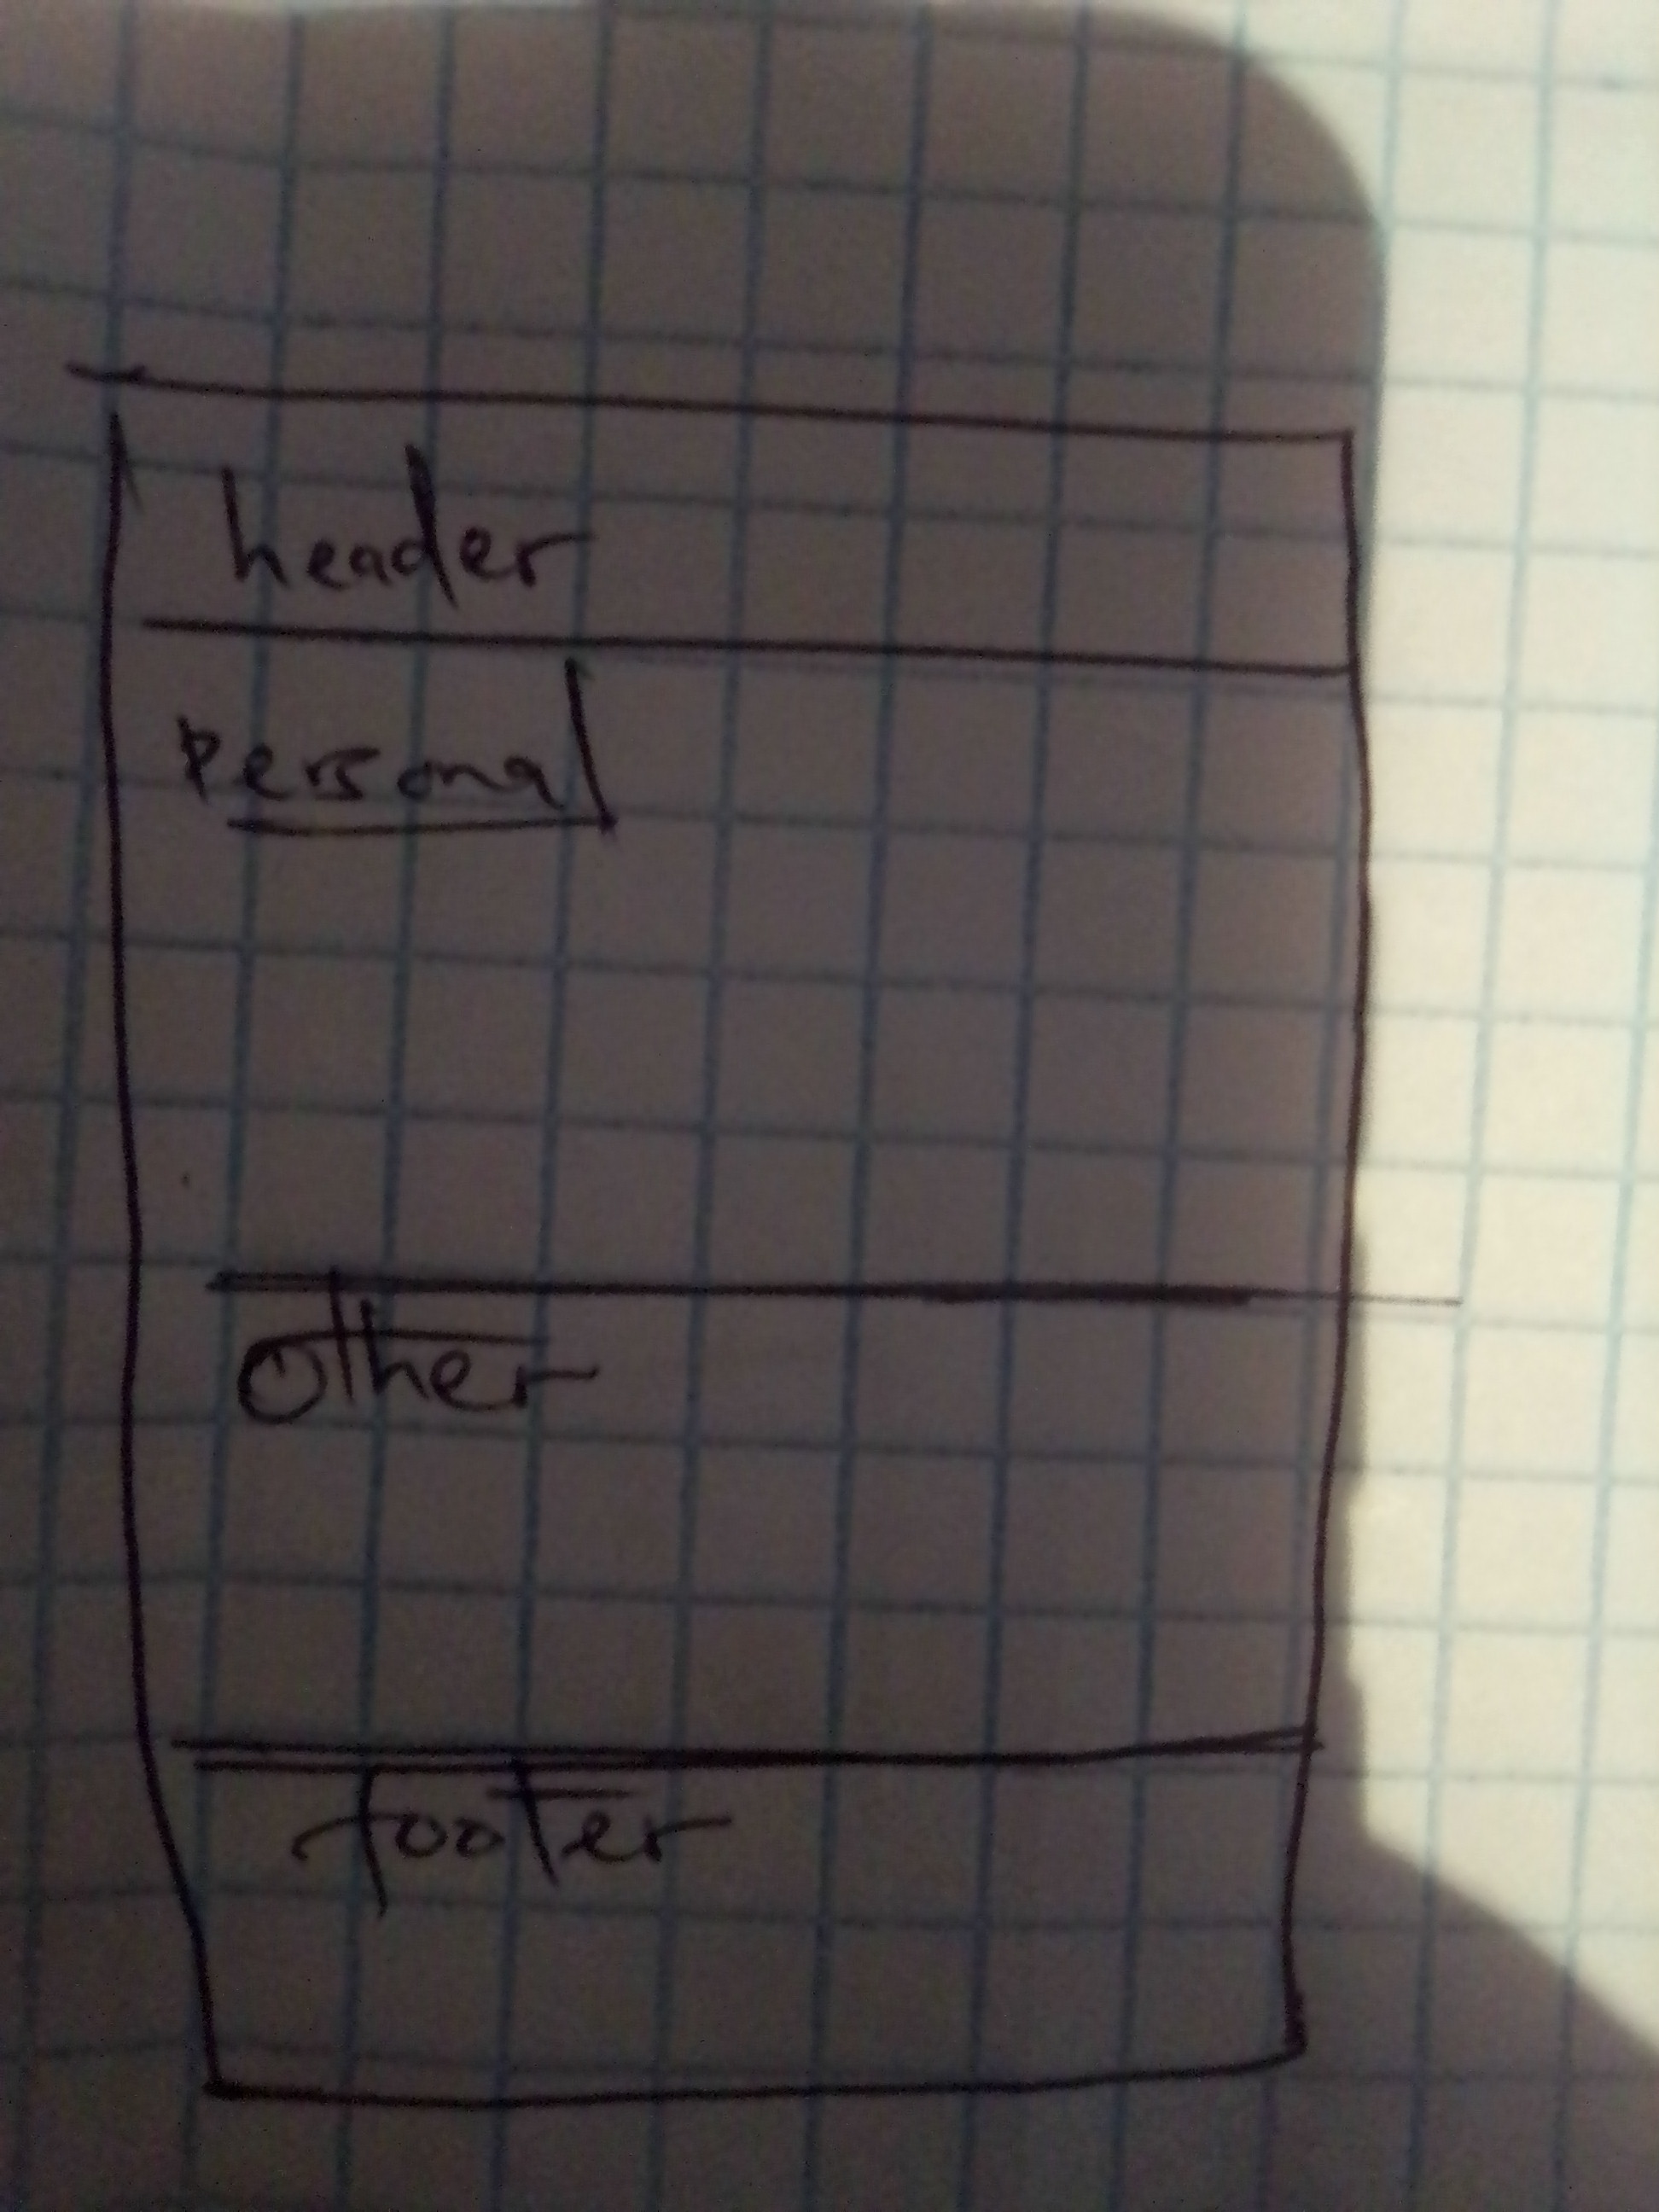 header
Personal
other
footer